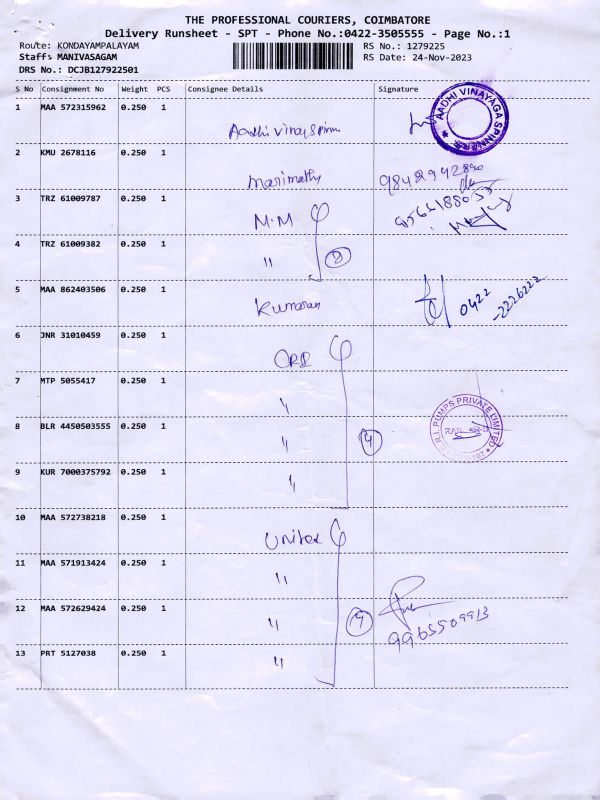 THE PROFESSIONAL COURIERS, COIMBATORE
Delivery Runsheet - SPT - Phone No.:0422-3505555 - Page No.:1
Route: KONDAYAMPALAYAM RS No.: 1279225
Staff: MANIVASAGAM RS Date: 24-Nov-2023
DRS No.: DCJB127922501
S No Consignment No Weight PCS Consignee Details Signature
1 MAA 572315962 0.250 1 Aadhi Vinay Spinn AADHI VINAYAGA SPINNERS
2 KMU 2678116 0.250 1 Marimathy 9842942880
3 TRZ 61009787 0.250 1 M.M
4 TRZ 61009382 0.250 1 " 2
5 MAA 862403506 0.250 1 Kumaran 0422-2226222
6 JNR 31010459 0.250 1 CRI
7 MTP 5055417 0.250 1 "
8 BLR 4450503555 0.250 1 " 4 C.R.I. PUMPS PRIVATE LIMITED
9 KUR 7000375792 0.250 1 "
10 MAA 572738218 0.250 1 United
11 MAA 571913424 0.250 1 "
12 MAA 572629424 0.250 1 " 4 9965509913
13 PRT 5127038 0.250 1 "